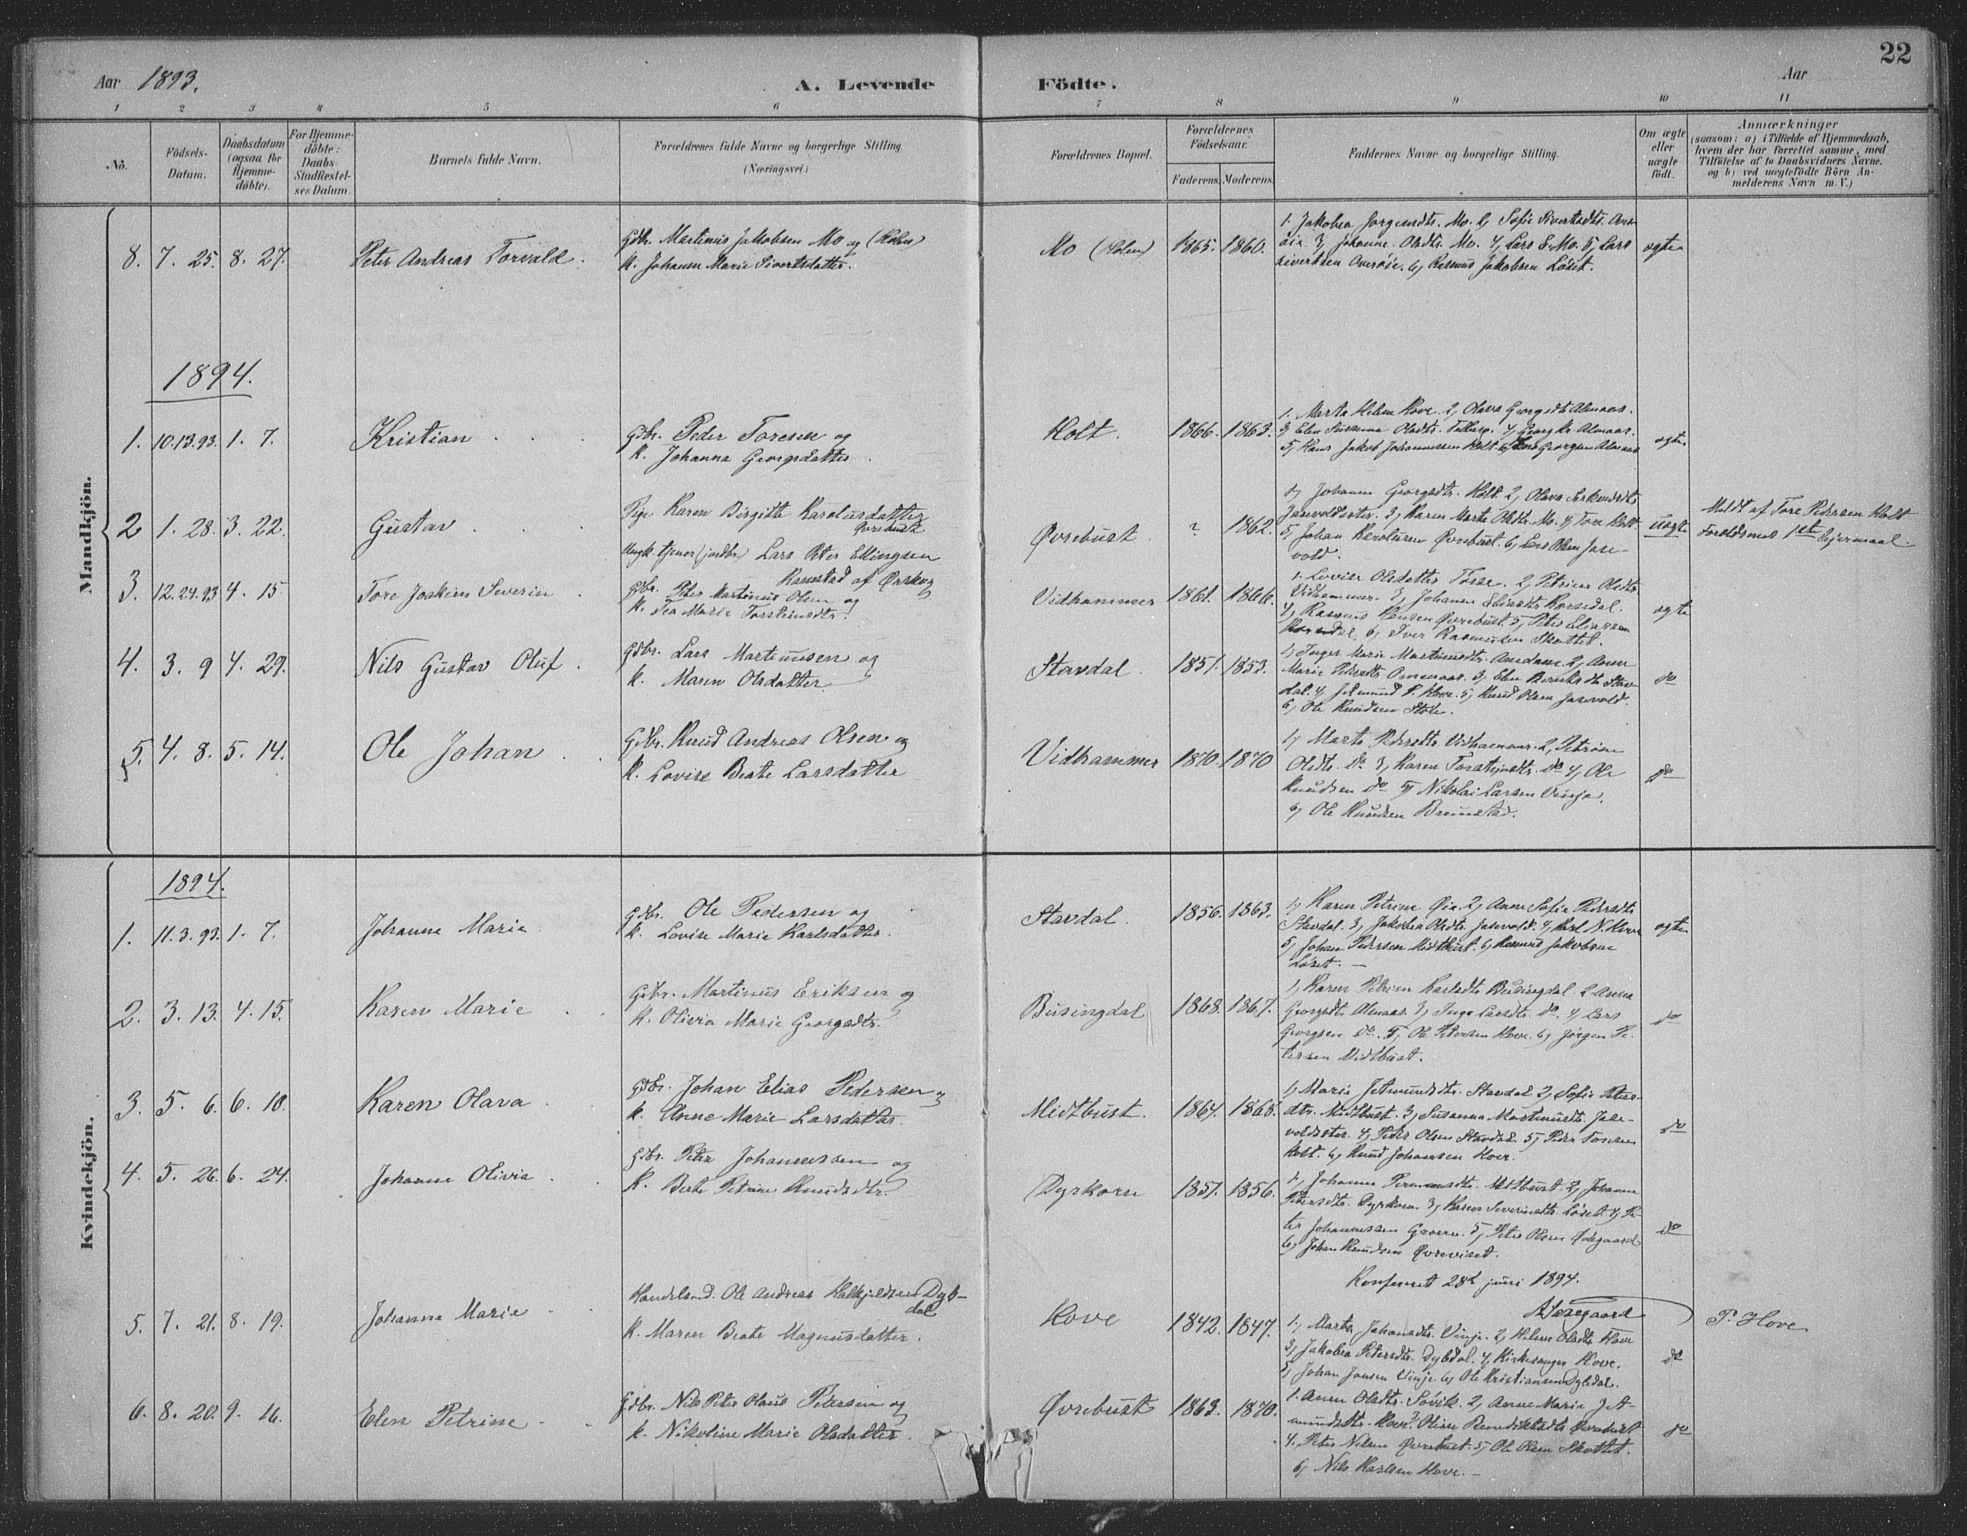 Aar 1893.
A. Levende
Födte.
Aar
22
1 2 3 4 5 6 7 8 9 10 11
No.
Födsels-
Datum.
Daabsdatum
(ogsaa for
Hjemme-
döbte).
For Hjemme-
döbte:
Daabs-
Stadfæstel-
ses Datum.
Barnets fulde Navn.
Forældrenes fulde Navne og borgerlige Stilling
(Næringsvei.)
Forældrenes Bopæl.
Forældrenes
Födselsaar.
Faderens. Moderens.
Faddernes Navne og borgerlige Stilling.
Om ægte
eller
uægte
födt.
Anmærkninger
(saasom: a) i Tilfælde af Hjemmedaab,
hvem der har forrettet samme, med
Tilföielse af to Daabsvidners Navne.
og b) ved uægtefödte Börn An-
melderens Navn m. V.)
Mandkjön.
8. 7. 25. 8. 27.
Peter Andreas Torvald.
Gdbr. Martinus Jakobsen Mo og (Holen)
K. Johanne Marie Sivertsdatter.
Mo (Holen)
1865. 1860.
1. Jakobea Jørgensdtr. Mo. 2, Sofie Sivertsdtr. Ove-
røie. 3, Johanne Olsdtr. Mo. 4, Lars E. Mo. 5, Lars
Sivertsen Overøie. 6, Rasmus Jakobsen Løset.
ægte
1894.
1. 10.13.93. 1. 7.
Kristian
Gdbr. Peder Toresen og
K. Johanna Georgsdatter.
Holt.
1866. 1863.
1. Marta Helene Hove. 2, Olava Georgsdtr Almaas.
5, Hans Jakob Johannessen Holt. 6, Lars Georgsen Almaas
ægte
2 1. 28. 3. 22.
Gustav
Pige Karen Birgitte Karolusdatter
Øvrebust
Ungk. tjener (jordbr.) Lars Peter Ellingsen
Ramstad af Ørskog
Øvrebust.
? 1862.
1, Johanne Georgsdtr. Holt 2, Olava
3, Karen Marte Olsdtr. Mo. 4, Tore Holt.
5, Johan Karolusen Øvrebust. 6, Lars Olsen Jase-
vold.
uægte
Meldt af Tore Pedersen Holt
Forældrenes 1ste Leiermaal.
3. 12.24.93 4. 15.
Tore Joakim Severin
Gdbr. Peter Martinus Olsen og
K. Tea Marie Torsteinsdtr.
Vidhammer
1861. 1866.
1. Lovise Olsdatter Fosse. 2, Petrine Olsdtr
Vidhammer. 3, Johanne Eliasdtr Korsedal.
4, Rasmus Hansen Øvrebust. 5, Peter Eliassen
Korsedal, 6, Iver Rasmussen Skottet.
ægte
4. 3. 9 4. 29.
Nils Gustav Oluf.
Gdbr. Lars Martinussen og
K. Maren Olsdatter
Stavdal.
1851. 1853.
1, Inger Marie Martinusdtr. Amdam 2, Anne
Marie Pedersdtr Omenaas. 3, Elen Bendiksdtr Stav-
dal. 4, Jetmund P. Hove. 5, Knud Olsen Jasevold.
6, Ole Knudsen Stole.
do
5. 4. 8. 5. 14.
Ole Johan
Gdbr. Knud Andreas Olsen og
K. Lovise Beate Larsdatter
Vidhammer
1870. 1870
1, Marte Pedersdtr Vidhammer. 2, Petrine
Olsdtr. do 3, Karen Torsteinsdtr. do 4, Ole
Knudsen do 5, Nikolai Larsen Vinje.
6, Ole Knudsen Brunstad.
do
Kvindekjön.
1894.
1. 11.3.93. 1. 7.
Johanne Marie
Gdbr. Ole Pedersen og
K. Lovise Marie Karlsdatter.
Stavdal.
1856. 1863.
1, Karen Petrine Øie. 2, Anne Sofie Pedersdtr
Stavdal. 3, Jakobea Olsdtr. Jasevold. 4, Karl N. Hove
5, Johan Pedersen Midtbust. 6, Rasmus Jakobsen
Løset. —
ægte
2. 3. 13. 4. 15.
Karen Marie
Gdbr. Martinus Eriksen og
K. Olivia Marie Georgsdtr.
Busingdal
1868. 1867.
1, Karen Petrine Karlsdtr Busingdal. 2 Anna
Georgsdtr Almaas. 3, Inga Larsdtr. do 4 Lars
Georgsen do. 5, Ole Petersen Hove. 6, Jørgen Pe-
tersen Midtbust.
do
3. 5. 6. 6. 10.
Karen Olava
Gdbr. Johan Elias Pedersen og
K. Anne Marie Larsdatter.
Midtbust.
1864. 1868.
1, Marie Jetmundsdtr. Stavdal 2, Sofie Peders-
dtr. Midtbust. 3, Susanna Martinusdtr. Jase-
voldsæter. 4, Peder Olsen Stavdal. 5, Peder Toresen
Holt. 6, Knud Johansen Hove.
do
4. 5. 26. 6. 24.
Johanne Olivia
Gdbr. Peter Johannessen og
K. Beate Petrine Knudsdtr.
Dyrkorn
1857. 1856.
1, Johanne Midtbust. 2, Johanne
Petersdtr. Dyrkorn 3, Karen Severinsdtr. Løset. 4, Pe-
ter Johannessen Gravem. 5, Peter Olsen Ødegaard
6, Johan Knudsen
do
Konfereret 28de juni 1894.
5. 7. 21. 8. 19.
Johanna Marie
Handelsmd. Ole Andreas Halkjeldsen Dyb-
dal
K. Maren Beate Magnusdatter.
Hove
1842. 1847.
1, Marta Johansdtr. Vinje. 2, Helene Olsdtr Hove
3, Jakobea Petersdtr. Dybdal. 4, Kirkesanger Hove.
5, Johan Jonsen Vinje. 6, Ole Kristiansen Dybdal.
do
P. Hove
6. 8. 20. 9. 16.
Elen Petrine
Gdbr. Nils Peter Olaus Petersen og
K. Nikoline Marie Olsdatter.
Øvrebust
1863. 1870.
1. Anne Olsdtr. Søvik. 2, Anne Marie Jet-
mundsdtr. Hove. 3, Oline Bendiksdtr Øvrebust
4, Peter Nilsen Øvrebust. 5, Ole Olsen Skottet.
6, Nils Karlsen Hove. —
do